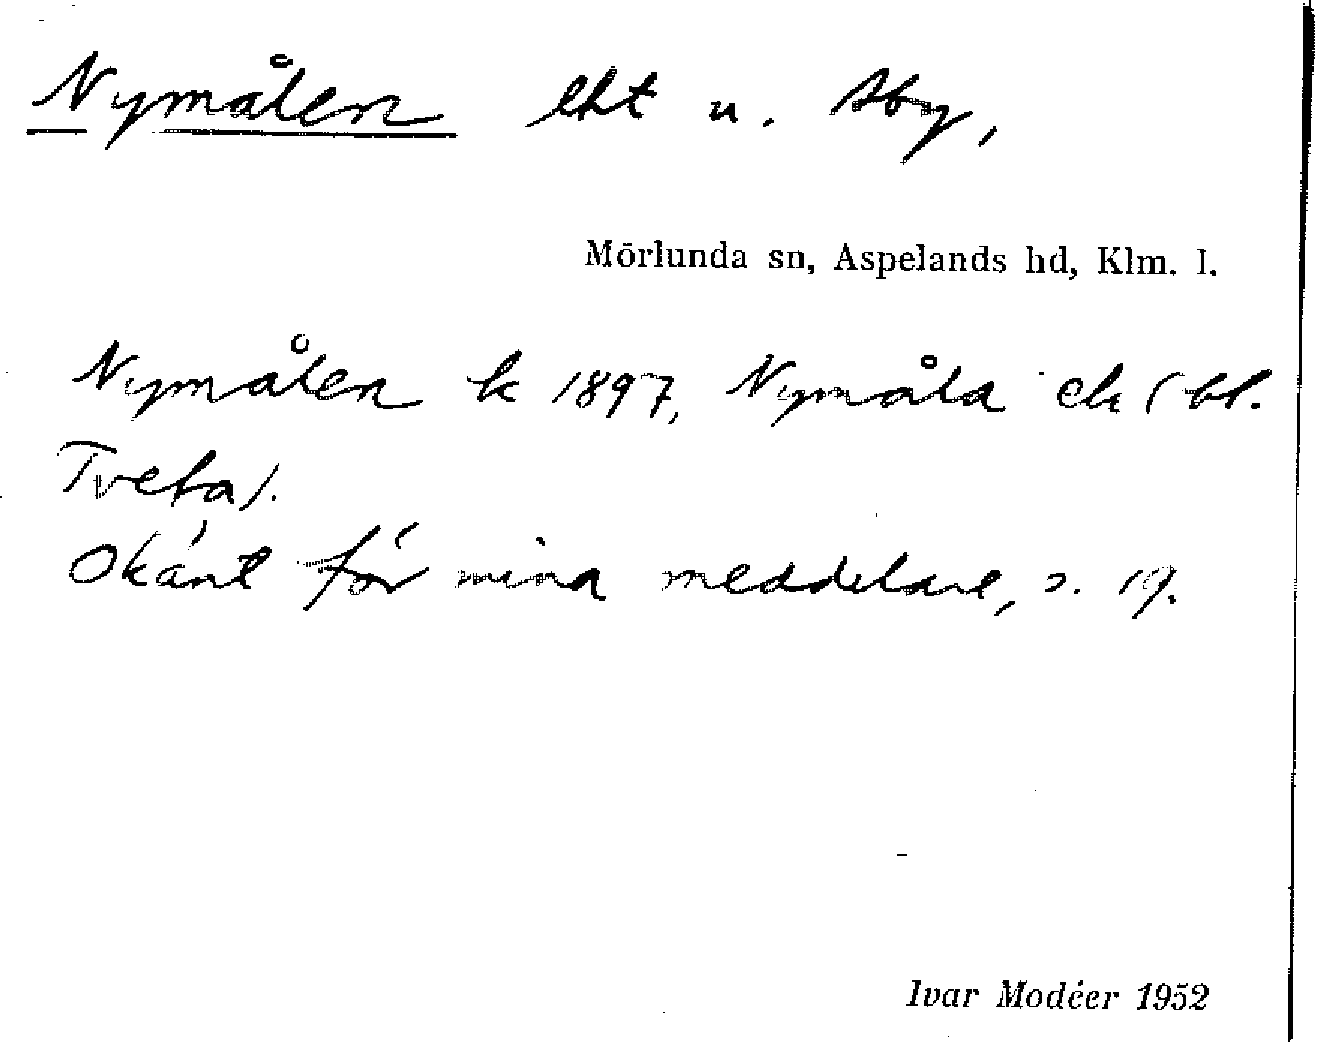 Nymålen lht u. Åby,
Mörlunda sn, Aspelands hd, Klm. l.
Nymålen k 1897, Nymåla ek (bl.
Tveta).
Okänt för mina meddelare, s. 19.
Ivar Modéer 1952